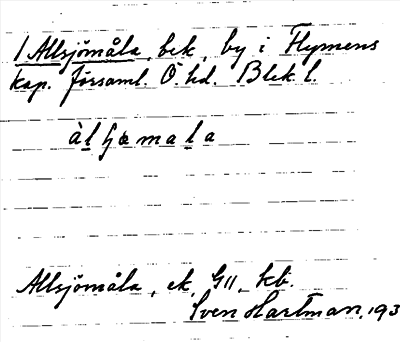 1 Allsjömåla, bek, by i Flymens
kap. församl. Ö. hd. Blek. l.
àlʃømala
Allsjömåla, ek, G11, kb.
Sven Hartman, 193